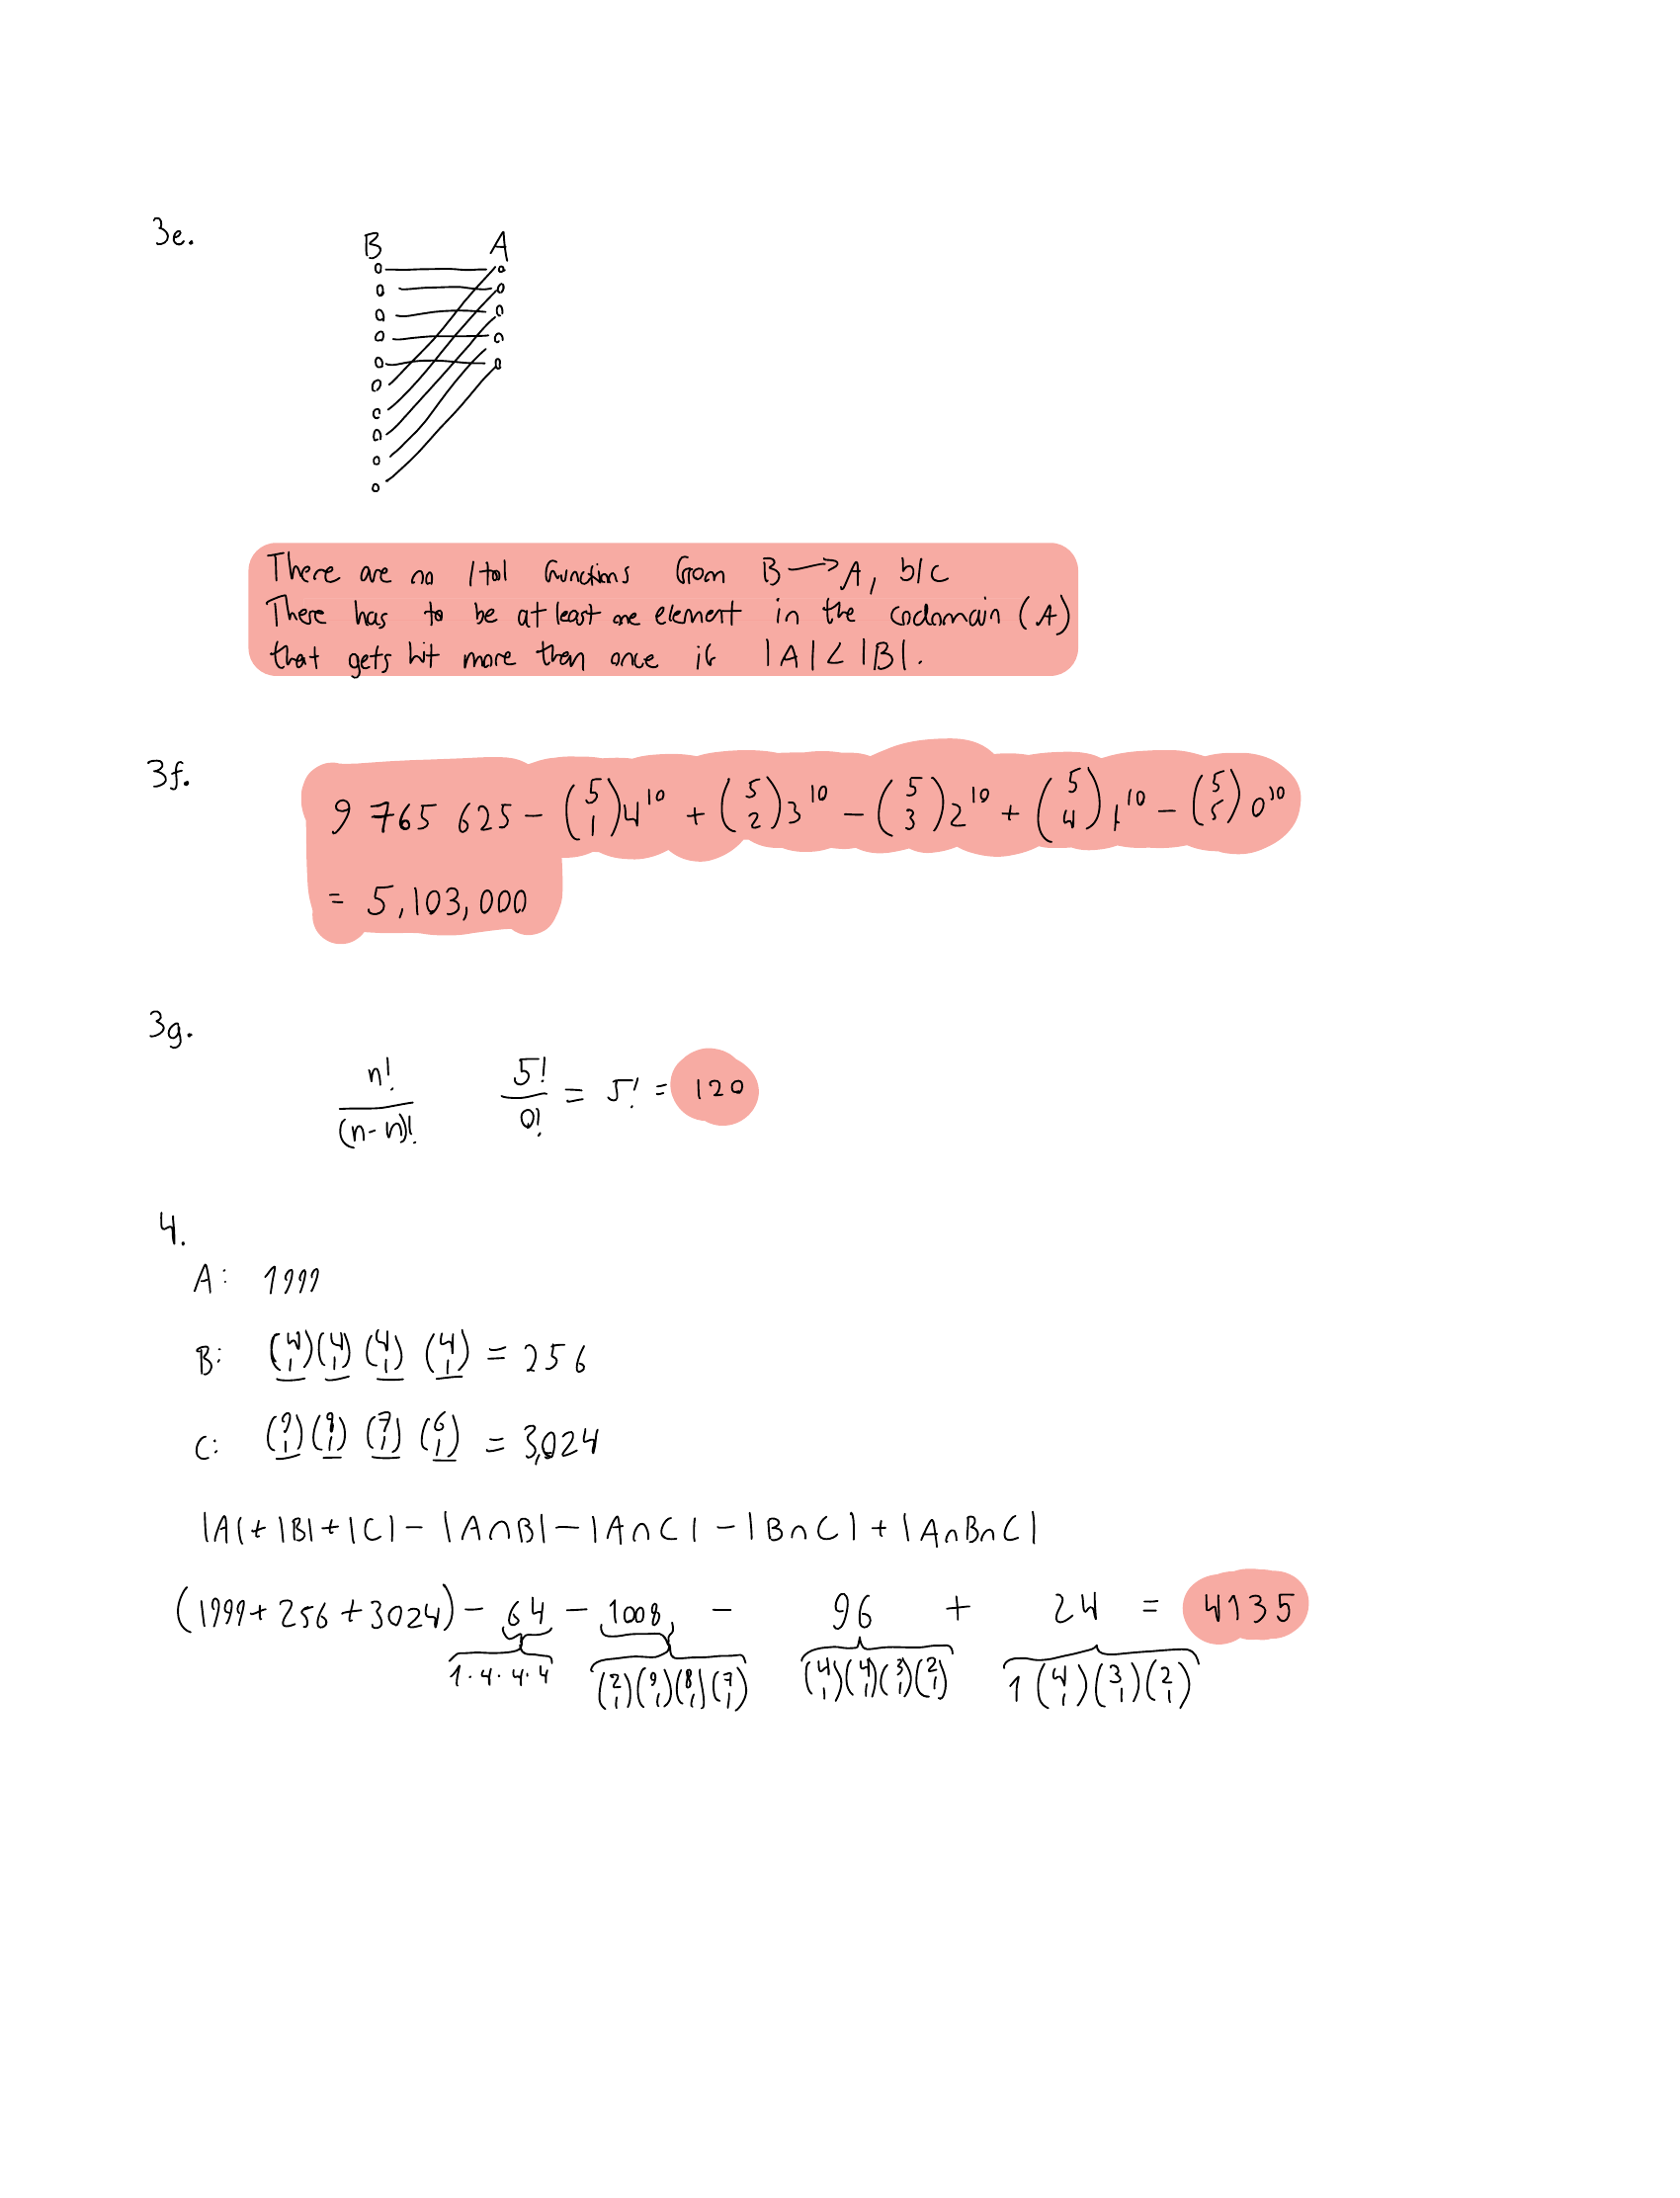 3e.
B A
There are no 1to1 functions from B → A, b/c
There has to be at least one element in the codomain (A)
that gets hit more then once if |A| < |B|.
3f.
9 765 625 − (5 1)4^10 + (5 2)3^10 − (5 3)2^10 + (5 4)1^10 − (5 5)0^10
= 5,103,000
3g.
n!/(n-n)! 5!/0! = 5! = 120
4.
A: 1999
B: (4 1)(4 1)(4 1)(4 1) = 256
C: (9 1)(8 1)(7 1)(6 1) = 3,024
|A| + |B| + |C| − |A∩B| − |A∩C| − |B∩C| + |A∩B∩C|
(1999 + 256 + 3024) − 64 − 1008 − 96 + 24 = 4135
1·4·4·4 (2 1)(9 1)(8 1)(7 1) (4 1)(4 1)(3 1)(2 1) 1(4 1)(3 1)(2 1)